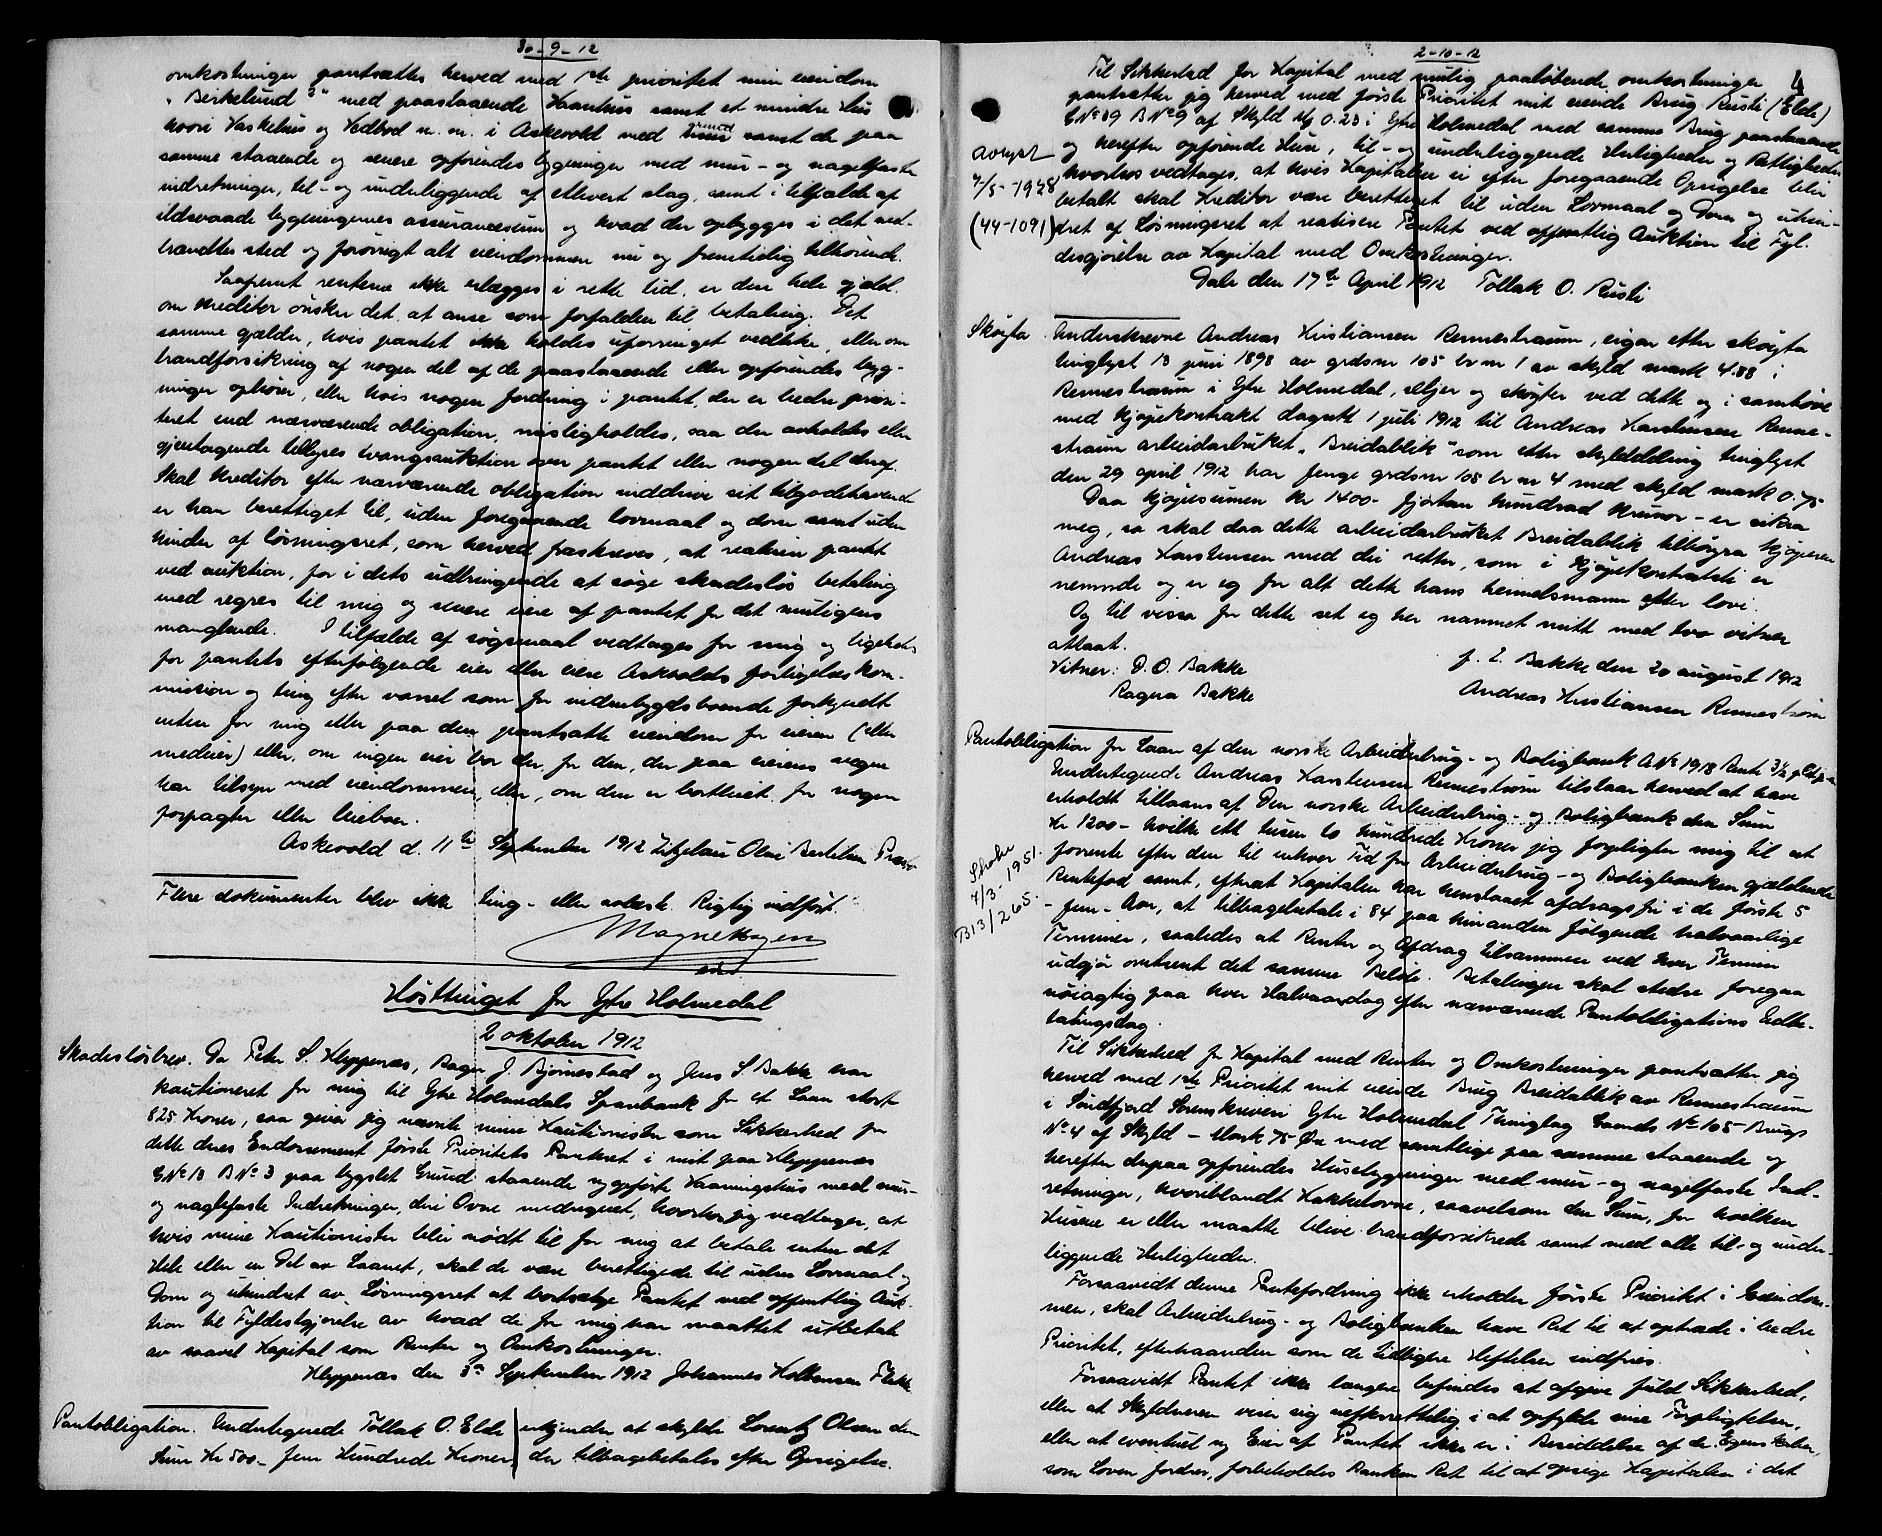 30-9-12
omkostninger pantsættes herved med 1ste prioritet min eiendom
"Birkelund" med paastaaende Vaanhus samt et mindre Hus
hvori Vaskehus og Vedbod m. m. i Askevold med samt de paa
samme staaende og senere opførendes bygninger med mur- og nagelfaste
indretninger, til- og underliggende af ethvert slag, samt i tilfælde af
ildsvaade bygningernes assurancesum og hvad der opbygges i det ned-
brændtes sted og forøvrigt alt eiendommen nu og fremtidig tilhørende.
Saafremt renterne ikke erlægges i rette tid, er den hele gjæld,
om kreditor ønsker det, at anse som forfalden til betaling. Det
samme gjælder, hvis pantet ikke holdes uforringet vedlike, eller om
brandforsikring af nogen del af de paastaaende eller opførendes byg-
ninger ophører, eller hvis nogen fordring i pantet, der er bedre priori-
teret end nærværende obligation, misligholdes, saa der avholdes eller
gjentagende tillyses tvangsauktion over pantet eller nogen del deraf.
Skal kreditor efter nærværende obligation inddrive sit tilgodehavende
er han berettiget til, uden foregaaende lovmaal og dom samt uden
hinder af løsningsret, som herved fraskrives, at realisere pantet
ved auktion, for i dets udbringende at søge skadesløs betaling
med regres til mig og senere eiere af pantet for det muligens
manglende. I tilfælde af søgsmaal vedtages for mig og ligeledes
for pantets efterfølgende eier eller eiere Askvolds forligelseskom-
mission og ting efter varsel som for indenbygds boende forkyndt
enten for mig eller paa den pantsatte eiendom for eieren (eller
medeier) eller, om ingen eier bor der, for den, der paa eierens vegne
har tilsyn med eiendommen, eller, om den er bortleiet, for nogen
forpagter eller leieboer.
Askevold d. 11te September 1912 Olai Bertelsen
Flere dokumenter blev ikke ting- eller avlæst. Rigtig indført.
Magne Hagen
Høsttinget for Ytre Holmedal
2 oktober 1912
Skadesløsbrev. Da Peter S. Kleppenæs, Roger J. Bjørnestad og Jens S. Bakke har
kautioneret for mig til Ytre Holmedals Sparebank for et Laan stort
825 Kroner, saa giver jeg nævnte mine Kautionister som Sikkerhed for
dette deres Endossement første Prioritets Panteret i mit paa Kleppenæs
GNo 13 BNo 3 paa bygslet Grund staaende nyopførte Vaaningshus med mur-
og naglefaste Indretninger, deri Ovne medregnet, hvorhos jeg vedtager, at
hvis mine Kautionister blir nødt til for mig at betale enten det
Hele eller en Del av Laanet, skal de være berettigede til uden Lovmaal,
Dom og uhindret av Løsningsret at bortsælge Pantet ved offentlig Auk-
tion til Fyldestgjørelse av hvad de for mig har maattet utbetale
av saavel Kapital som Renter og Omkostninger.
Kleppenæs den 3die September 1912 Johannes Flekke
Pantobligation. Undertegnede Tollak O. Elde erkjender at skylde Lorentz Olsen den
Sum Kr 500- fem Hundrede Kroner, der tilbagebetales efter Opsigelse.
2-10-12
4
Til Sikkerhed for Kapital med mulig paaløbende omkostninger
pantsætter jeg herved med første Prioritet mit eiende Brug Rusti (Elde)
GNo 39 BNo 9 af Skyld Mk 0.23 i Ytre Holmedal med samme Brug paastaaende
og herefter opførende Huse, til- og underliggende Herligheder og Rettigheder
hvorhos vedtages, at hvis Kapitalen ei efter foregaaende Opsigelse blir
betalt skal Kreditor være berettiget til uden Lovmaal og Dom og uhin-
dret af Løsningsret at realisere Pantet ved offentlig Auktion til Fyl-
destgjørelse av Kapital med Omkostninger.
Avlyst
7/5-1948
(44-1091)
Dale den 17de April 1912 Tollak O. Rusti
Skøyta Underskrevne Andreas Kristiansen Rennestraum, eigar etter skøyta
tinglyst 13 juni 1898 av grdsnr 105 br nr 1 av skyld mark 4.88 i
Rennestraum i Ytre Holmedal, seljer og skøyter ved dette og i samhøve
med kjøpekontrakt dagsett 1 juli 1912 til Andreas Karstensen Renne-
straum arbeidarbruket "Breidablik" som etter skylddeling tinglyst
den 29 april 1912 har fenge grdsnr 105 br nr 4 med skyld mark 0.75
Daa kjøpesummen kr 1400- fjortan hundrad kronor - er sikra
meg, so skal daa dette arbeidarbruket Breidablik tilhøyra kjøperen
Andreas Karstensen med dei retter, som i kjøpekontrakti er
nemnde og er eg for alt dette hans heimelsmann etter lovi.
Og til vissa for dette set eg her namnet mitt med two vitner
attaat.
Vitner: D. O. Bakke
Ragna Bakke
p. t. Bakke den 20 august 1912
Andreas Kristiansen Rennestraum
Pantobligation for Laan af den norske Arbeiderbrug- og Boligbank ANo 1918 Rente 3½
Undertegnede Andreas Karstensen Rennestrøm tilstaar herved at have
erholdt tillaans af Den norske Arbeiderbrug- og Boligbank den Sum
Kr 1200- hvilke ett tusen to hundrede Kroner jeg forpligter mig til at
forrente efter den til enhver Tid for Arbeiderbrug- og Boligbanken gjældende
Rentefod samt, efterat Kapitalen har henstaaet afdragsfri i de første 5
- fem - Aar, at tilbagebetale i 84 paa hinanden følgende halvaarlige
Terminer, saaledes at Renter og Afdrag tilsammen ved hver Termin
udgjør omtrent det samme Beløb. Betalingen skal stedse foregaa
nøiagtig paa hver Halvaarsdag efter nærværende Pantobligations Udbe-
talingsdag.
7/3-1951.
B13/265.
Til Sikkerhed for Kapital med Renter og Omkostninger pantsætter jeg
herved med 1ste Prioritet mit eiende Brug Breidablik av Rennestraum
i Søndfjord Sorenskriveri Ytre Holmedal Thinglag Gaards No 105 Brugs
No 4 af Skyld - Mark 75 Øre med samtlige paa samme staaende og
herefter derpaa opførendes Husebygninger med mur- og nagelfaste Ind-
retninger, hvoriblandt Kakkelovne, saavelsom den Sum, for hvilken
Husene er eller maatte blive brandforsikrede samt med alle til- og under-
liggende Herligheder.
Forsaavidt denne Pantefordring ikke erholder første Prioritet i Eiendom-
men, skal Arbeiderbrug- og Boligbanken have Ret til at optræde i bedre
Prioritet, efterhaanden som de tidligere Heftelser indfries.
Forsaavidt Pantet ikke længere befindes at afgive fuld Sikkerhed,
eller at Skyldneren viser sig uefterrettelig i at opfylde sine Forpligtelser,
eller at eventuel ny Eier af Pantet ikke er i Besiddelse af de Egenskaber,
som Loven fordrer, forbeholdes Banken Ret til at opsige Kapitalen i det